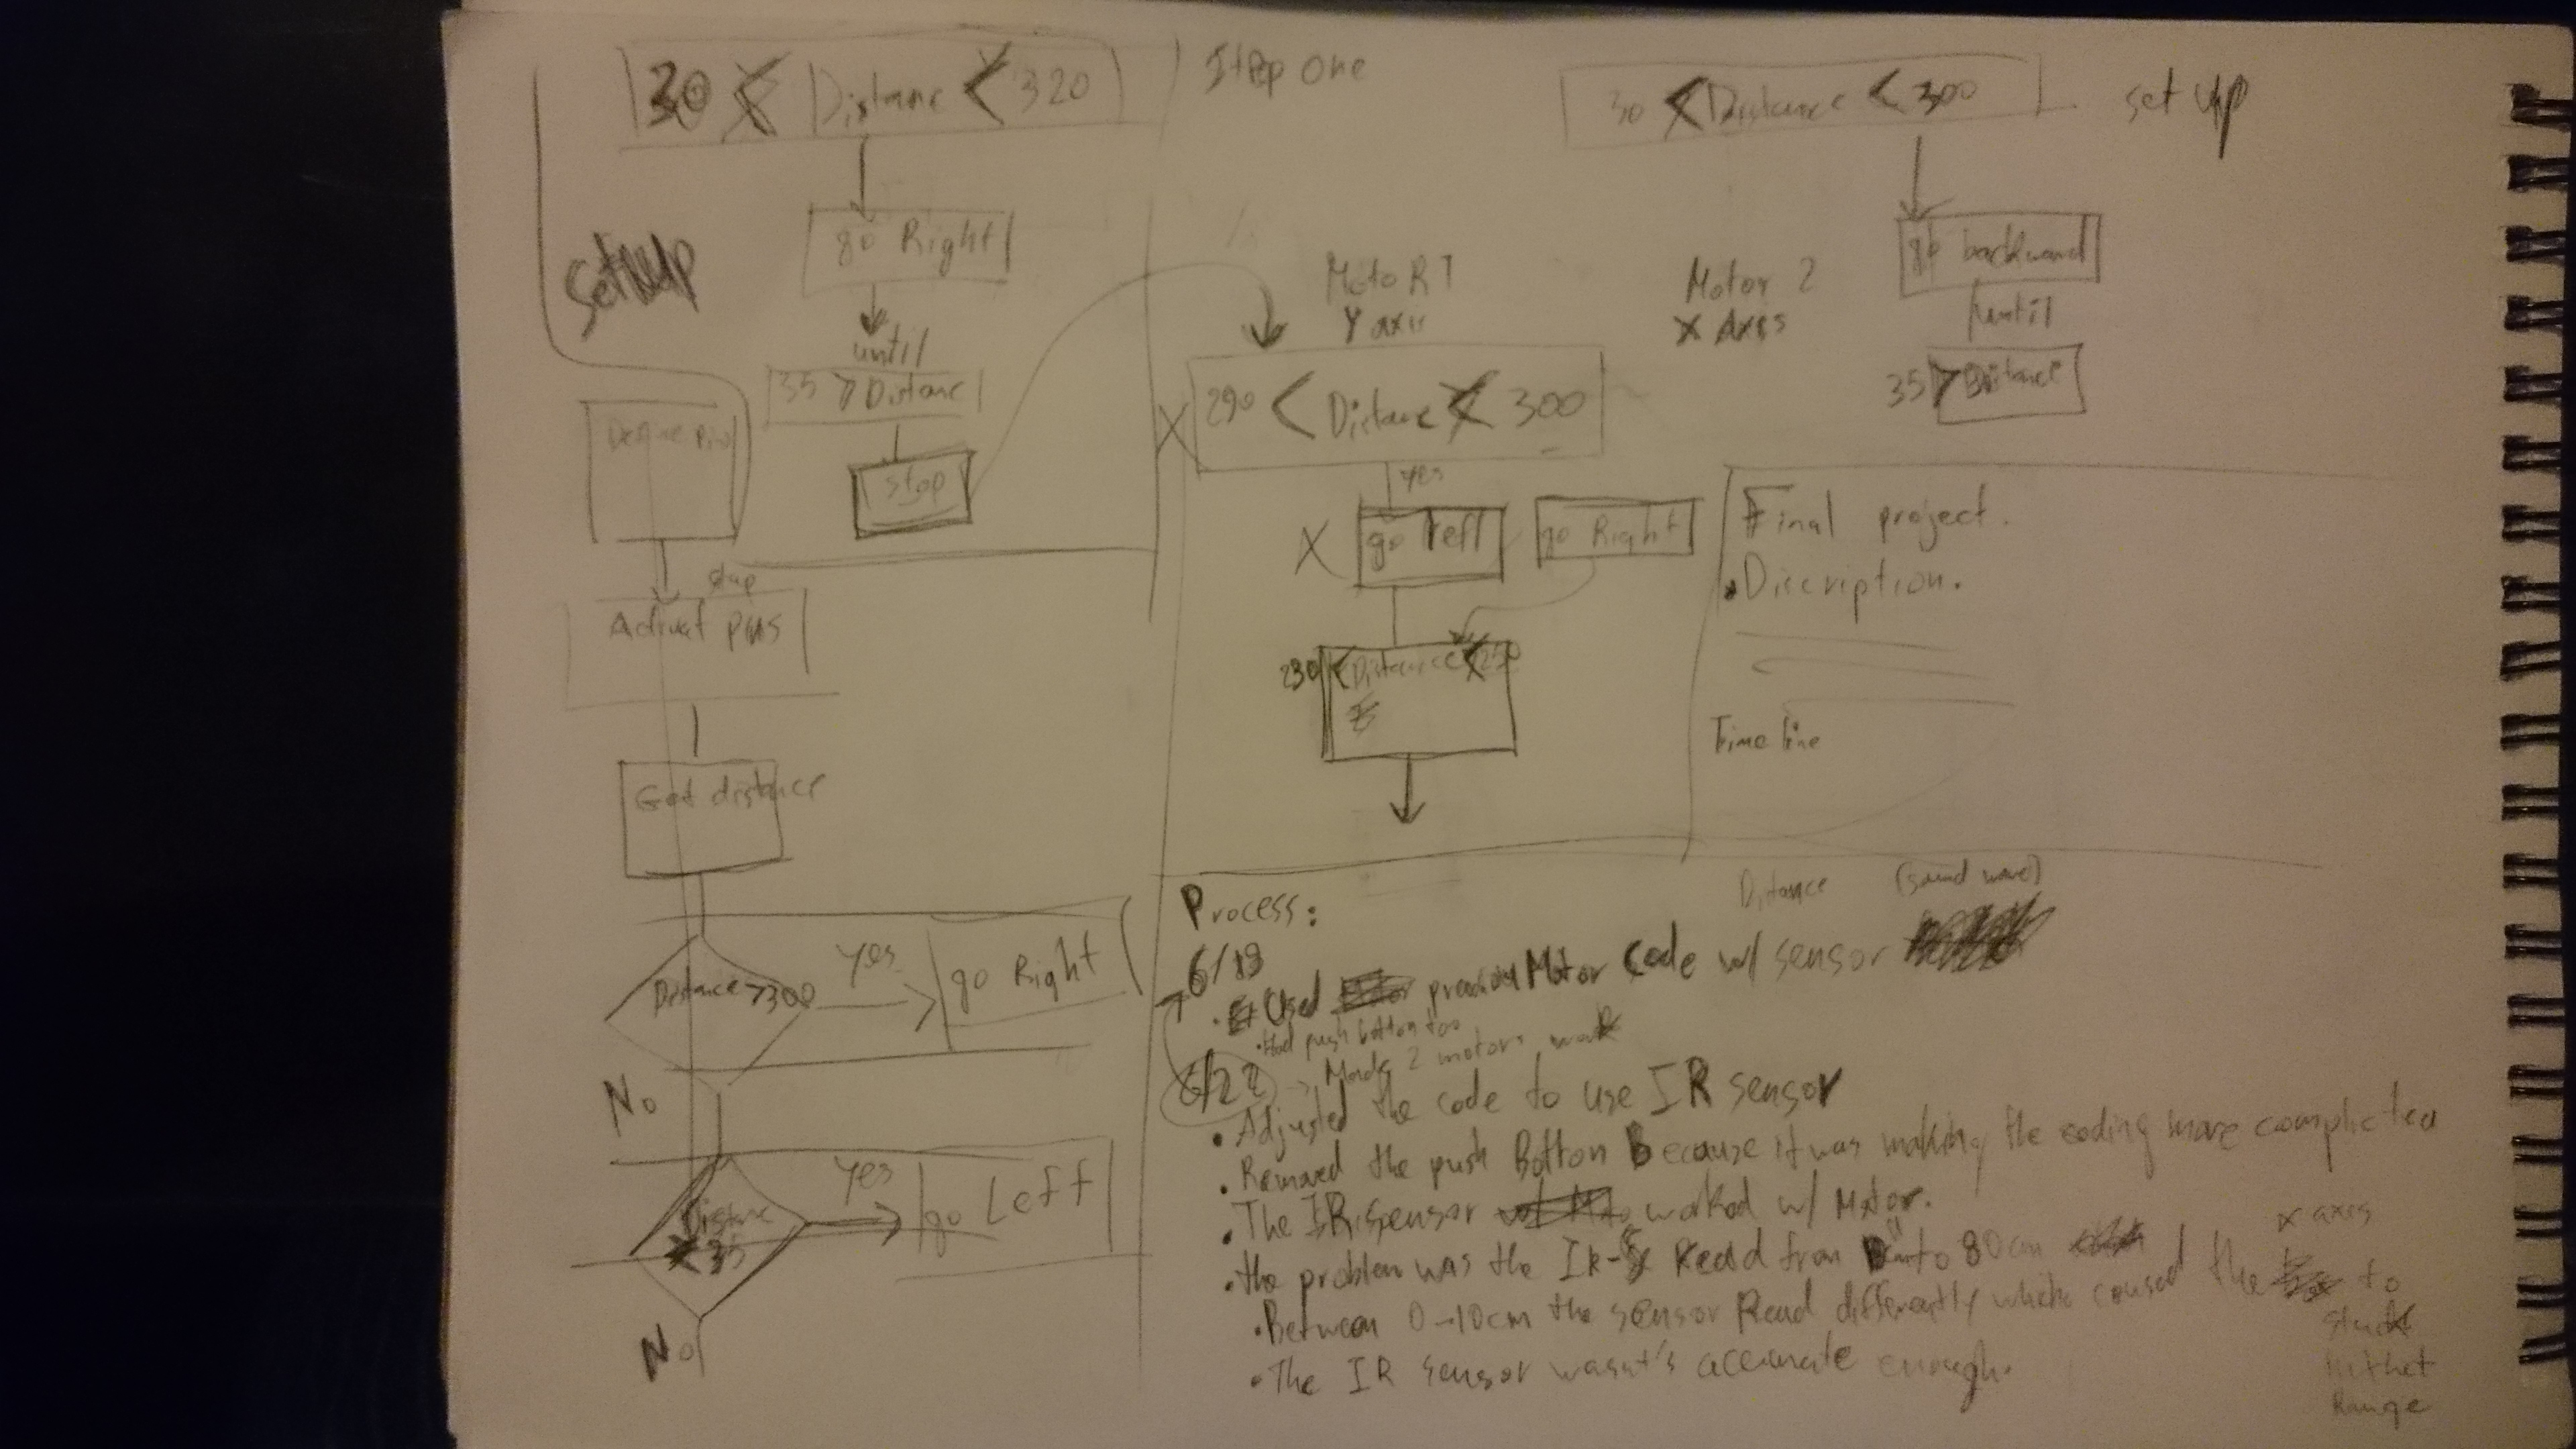 30 < Distanc < 320
go Right
until
35 > Distanc
stop
set up
Define pin
step
Adjust pins
Get distance
Distance > 300
Yes
go Right
No
Distanc
< 35
Yes
go Left
No
Step one
Motor 1
Y axis
Motor 2
X Axes
290 < Distance < 300
X
yes
X
go left
go Right
230 < Distance < 250
30 < Distance < 300
set up
go backward
until
35 > Distance
Final project.
• Discription.
Time line
Process:
Distance (sound wave)
6/19
• Used previous Motor Code w/ sensor
• Had push botton too
6/22 → Made 2 motors work
• Adjusted the code to use IR sensor
• Removed the push Botton Because it was making the coding more complicted
• The IR sensor worked w/ Motor.
• the problem was the IR-S Read from to 80cm
• Between 0-10cm the sensor Read differently which caused the x axes to
stuck
in that
Range
• The IR sensor wasnt's accurate enough.